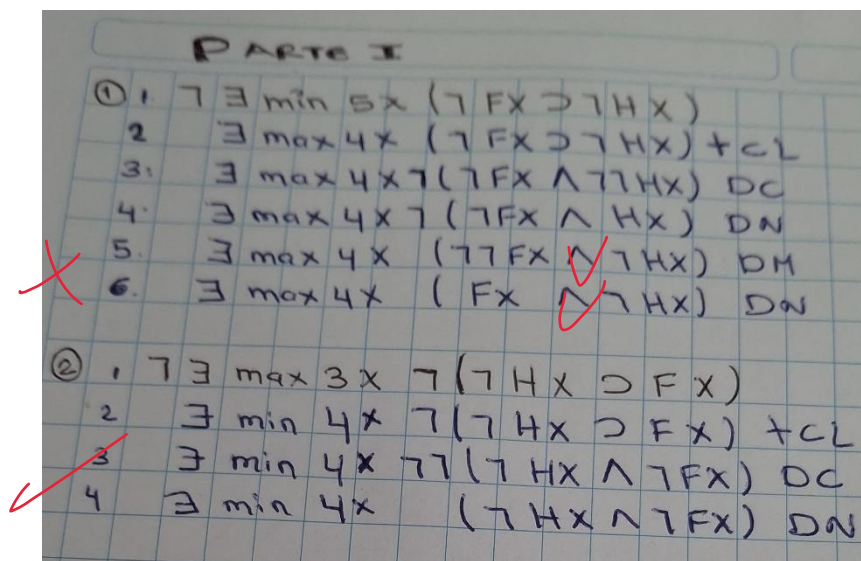 PARTE I
① 1. ¬ ∃ min 5x (¬ Fx ⊃ ¬ Hx)
2 ∃ max 4x (¬ Fx ⊃ ¬ Hx) + CL
3: ∃ max 4x ¬ (¬ Fx ∧ ¬¬ Hx) DC
4. ∃ max 4x ¬ (¬Fx ∧ Hx) DN
5. ∃ max 4x (¬¬ Fx ∧ ¬ Hx) DM
6. ∃ max 4x ( Fx ∧ ¬ Hx) DN
② 1 ¬ ∃ max 3x ¬ (¬ Hx ⊃ Fx)
2 ∃ min 4x ¬ (¬ Hx ⊃ Fx) + CL
3 ∃ min 4x ¬¬ (¬ Hx ∧ ¬ Fx) DC
4 ∃ min 4x (¬ Hx ∧ ¬ Fx) DN